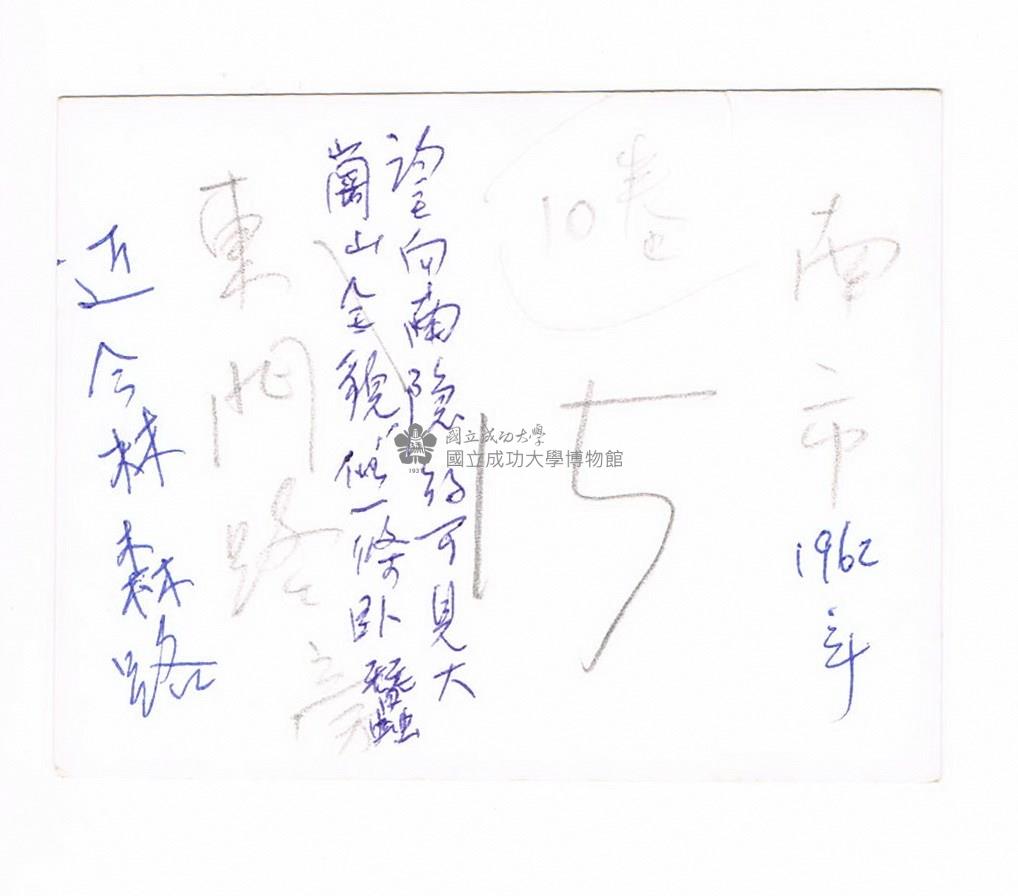 南市1962年
10卷
15
望向南隱約可見大
崗山全貌似一條臥蠶
東門路
近今林森路
國立成功大學
國立成功大學博物館
1931